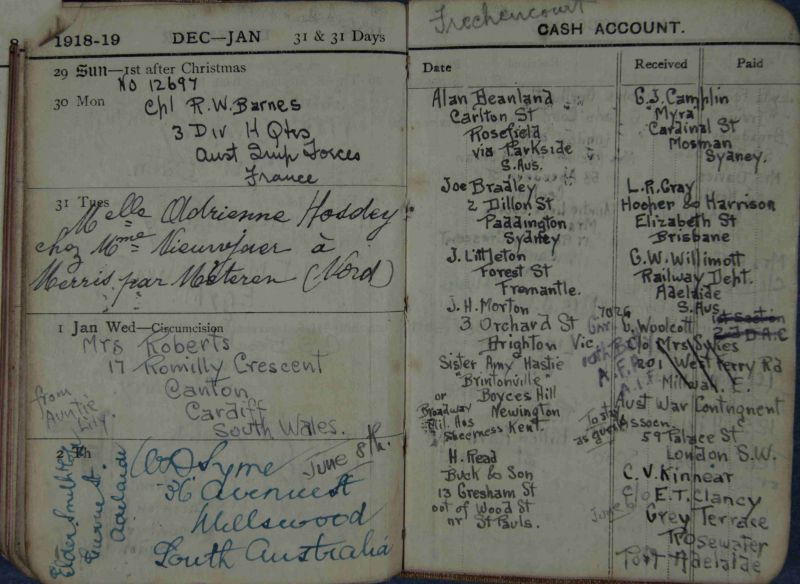 1918-19 DEC—JAN 31 & 31 Days
29 Sun—1st after Christmas
No 12697
30 Mon
Cpl R.W. Barnes
3 Div H Qtrs
Aust Imp Forces
France
31 Tues
Melle Adrienne Hosdey
chez Mme Vieuvojaer à
Merris par Méteren (Nord)
1 Jan Wed—Circumcision
Mrs Roberts
17 Romilly Crescent
Canton
Cardiff
South Wales.
from
Auntie
Lily.
2 Th
Elder Smith & Co
Currie St.
Adelaide
Syme
June 8th.
36 Avenue St
Millswood
South Australia
Frechencourt
CASH ACCOUNT.
Date Received Paid
Alan Beanland
Carlton St
Rosefield
via Parkside
S. Aus.
Joe Bradley
2 Dillon St
Paddington
Sydney
J. Littleton
Forest St
Fremantle.
J. H. Morton
3 Orchard St
Brighton Vic.
Sister Amy Hastie
"Brintonville"
Boyces Hill
Newington
or
Broadway
Mil. Hos
Sheerness Kent.
H. Read
Buck & Son
13 Gresham St
out of Wood St
nr St Pauls.
G. J. Camplin
"Myra"
Cardinal St
Mosman
Sydney.
L. R. Gray
Hooper & Harrison
Elizabeth St
Brisbane
G. W. Willimott
Railway Dept.
Adelaide
S. Aus
1st Section
2 D.A.C
7026
Gnr
G. Woolcott
C/o Mrs Svies
201 West Ferry Rd
Millwall. E.
A.F.A
A.I.F
To stay
as guest
Aust War Contingent
Assocn.
59 Palace St
London S.W.
C. V. Kinnear
C/o E. T. Clancy
June
Grey Terrace
Rosewater
Port Adelaide